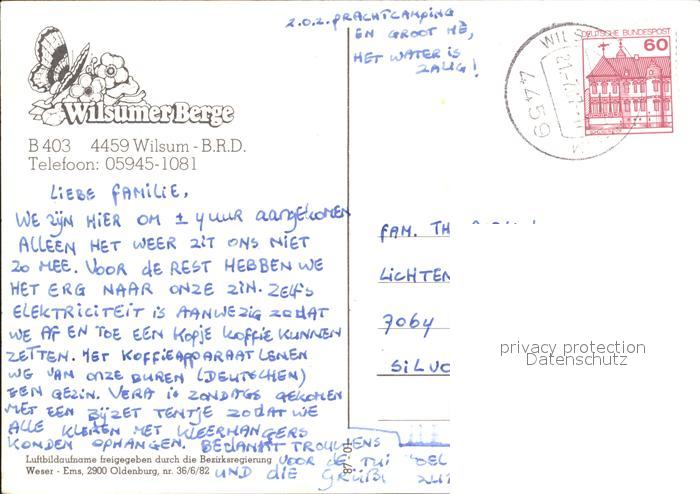 Z.O.Z. PRACHTCAMPING
EN GROOT HÈ,
HET WATER IS
ZALIG!
DEUTSCHE BUNDESPOST
60
WILS
4459
Wilsumer Berge
B 403 4459 Wilsum - B.R.D.
Telefoon: 05945-1081
LIEBE FAMILIE,
WE ZIJN HIER OM ± 4 UUR AANGEKOMEN
ALLEEN HET WEER ZIT ONS NIET
ZO MEE. VOOR DE REST HEBBEN WE
HET ERG NAAR ONZE ZIN. ZELFS
ELEKTRICITEIT IS AANWEZIG ZODAT
WE AF EN TOE EEN KOPJE KOFFIE KUNNEN
ZETTEN. HET KOFFIEAPPARAAT LENEN
WE VAN ONZE BUREN (DEUTSCHEN)
EEN GEZIN. VERA IS ZONDAGS GEKOMEN
MET EEN BIJZET TENTJE ZODAT WE
ALLE KLEREN MET KLEERHANGERS
KONDEN OPHANGEN. BEDANKT TROUWENS
VOOR DE
UND DIE
FAM. TH
LICHTEN
7064
SILVO
privacy protection
Datenschutz
Luftbildaufname freigegeben durch die Bezirksregierung
Weser - Ems, 2900 Oldenburg, nr. 36/6/82